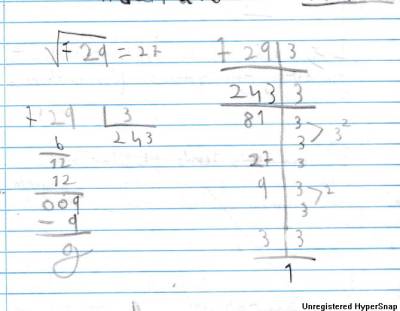 √729 = 27
729 | 3
243 | 3
81 | 3
3 > 3²
27 | 3
9 | 3
3 > 2
3 | 3
1
729 | 3
243
6
12
12
009
- 9
Unregistered HyperSnap